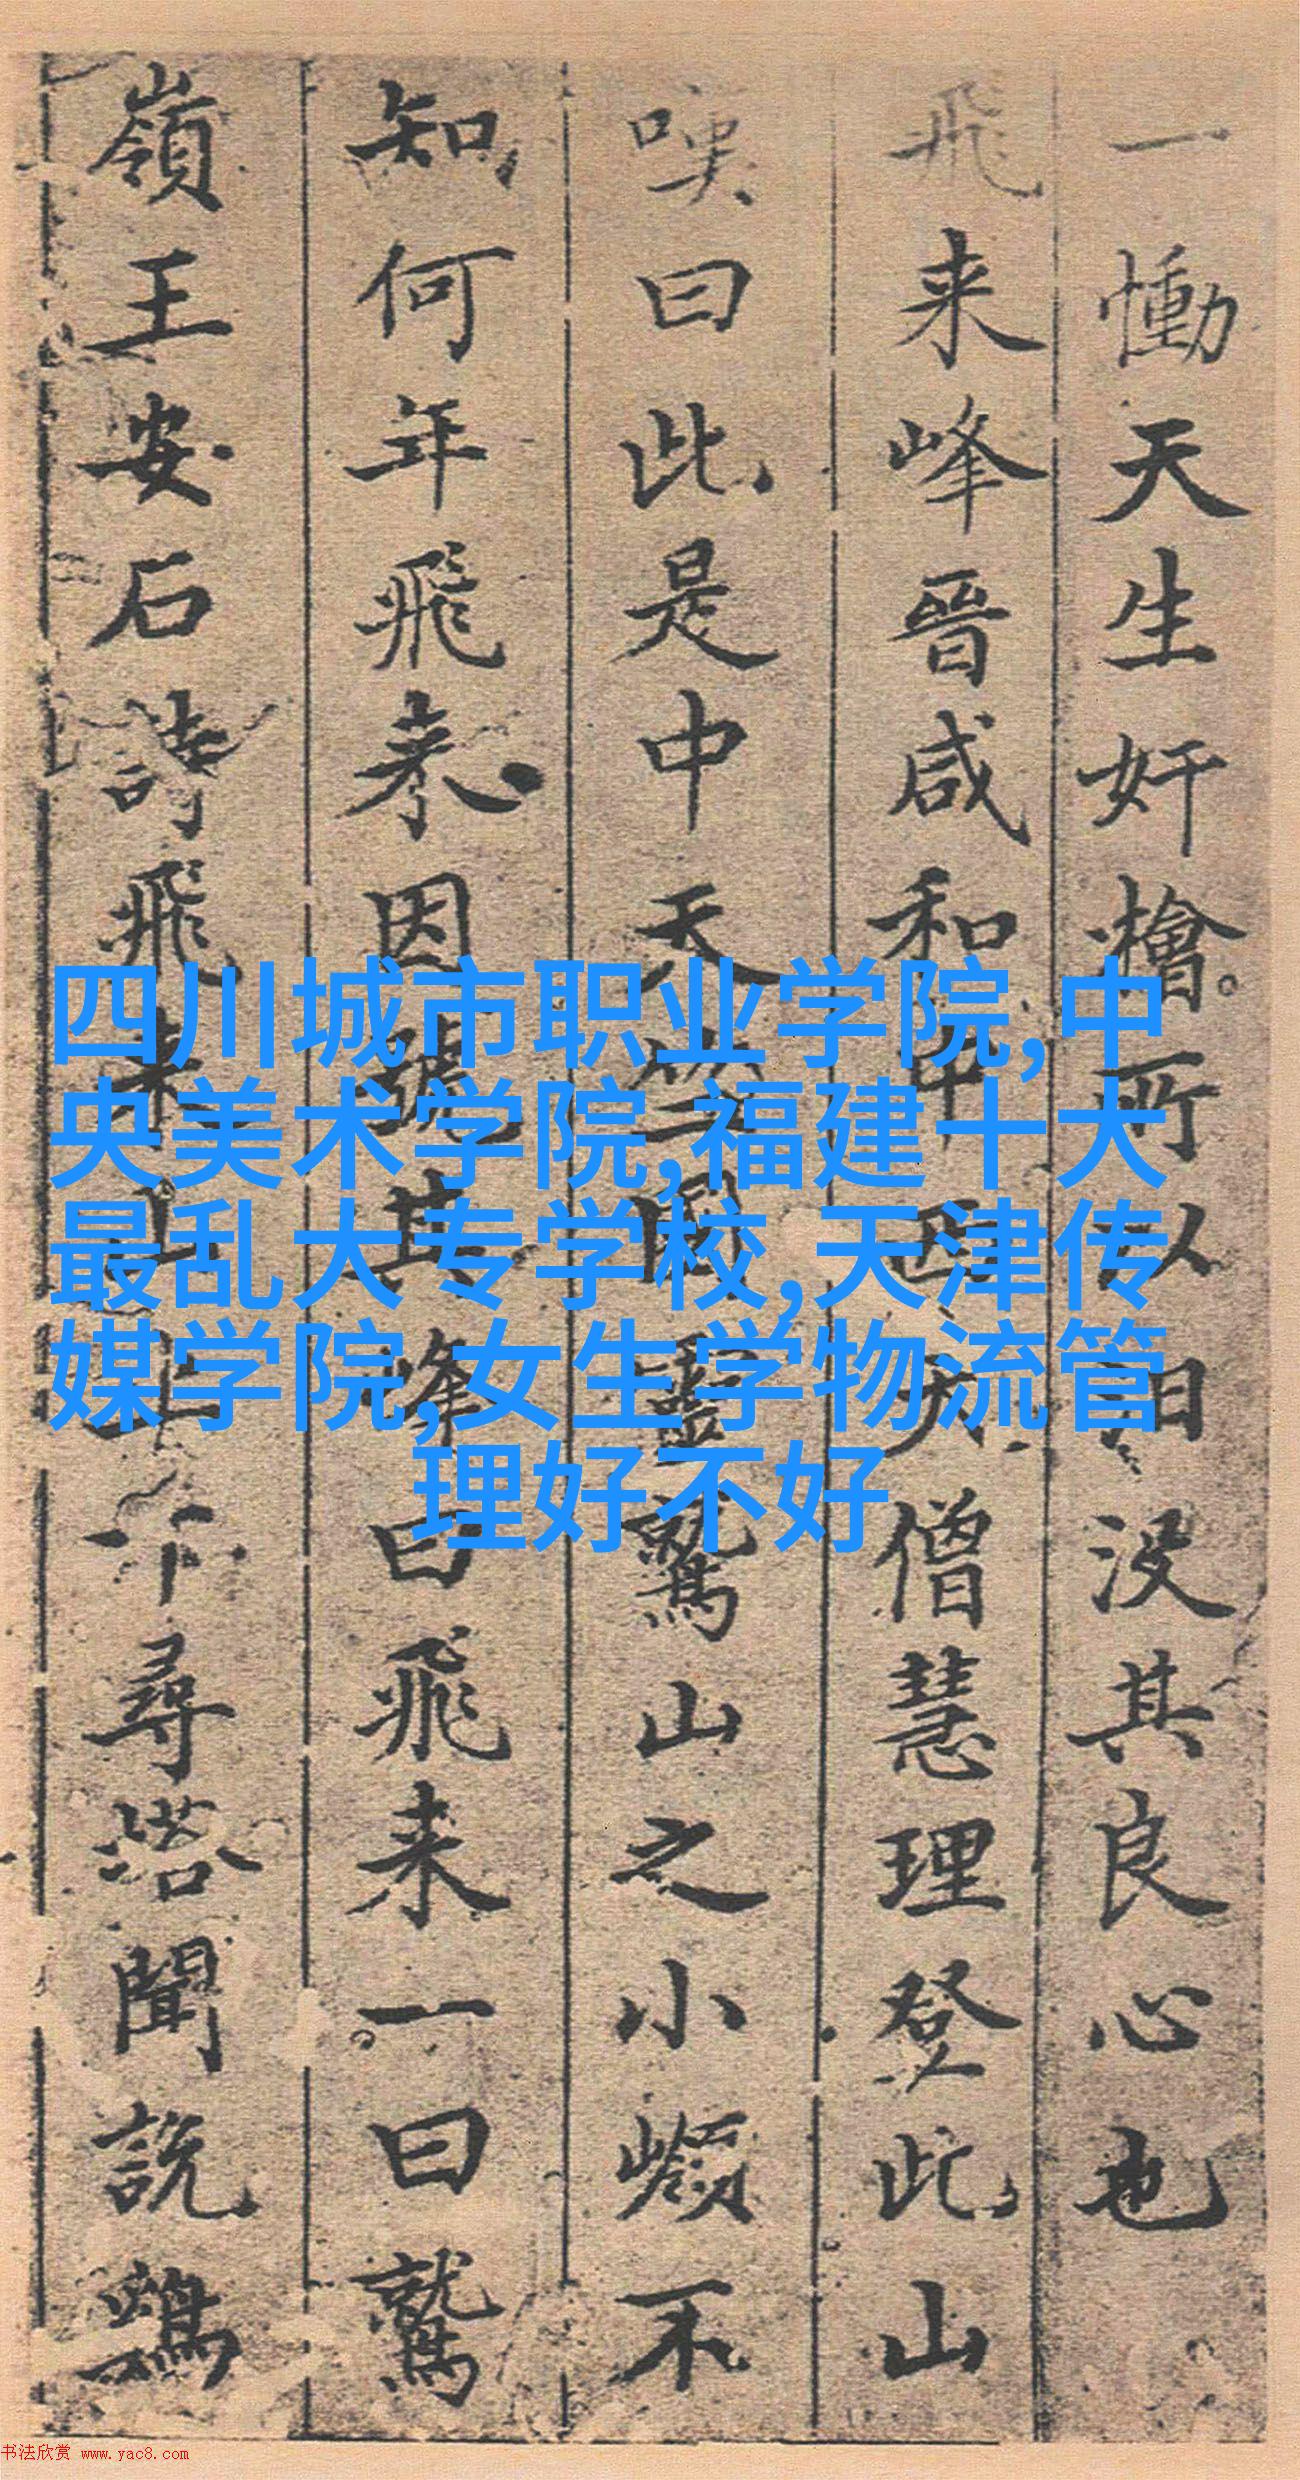 一慟天生奸檜所以汩没其良心也
飛来峰晉咸和中西天僧慧理登此山
嘆曰此是中天竺國靈鷲山之小嶺不
知何年飛来因號其峰曰飛来一曰鷲
嶺王安石詩飛来山上千尋塔聞說鷄
四川城市职业学院,中
央美术学院,福建十大
最乱大专学校,天津传
媒学院,女生学物流管
理好不好
书法欣赏 www.yac8.com